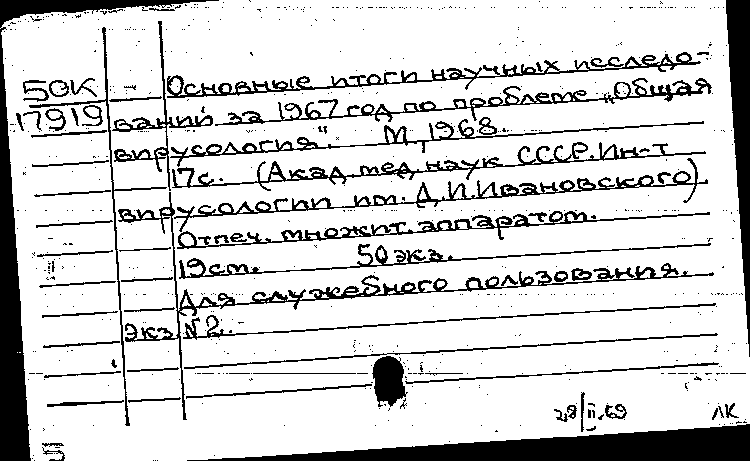 50К - Основные итоги научных исследо-
17919 ваний за 1967 год по проблеме „Общая
вирусология". М., 1968.
17с. (Акад. мед. наук СССР. Ин-т
вирусологии им. Д.И.Ивановского).
Отпеч. множит. аппаратом.
19см. 50 экз.
Для служебного пользования.
Экз. №2.
28/II.69 ЛК
5